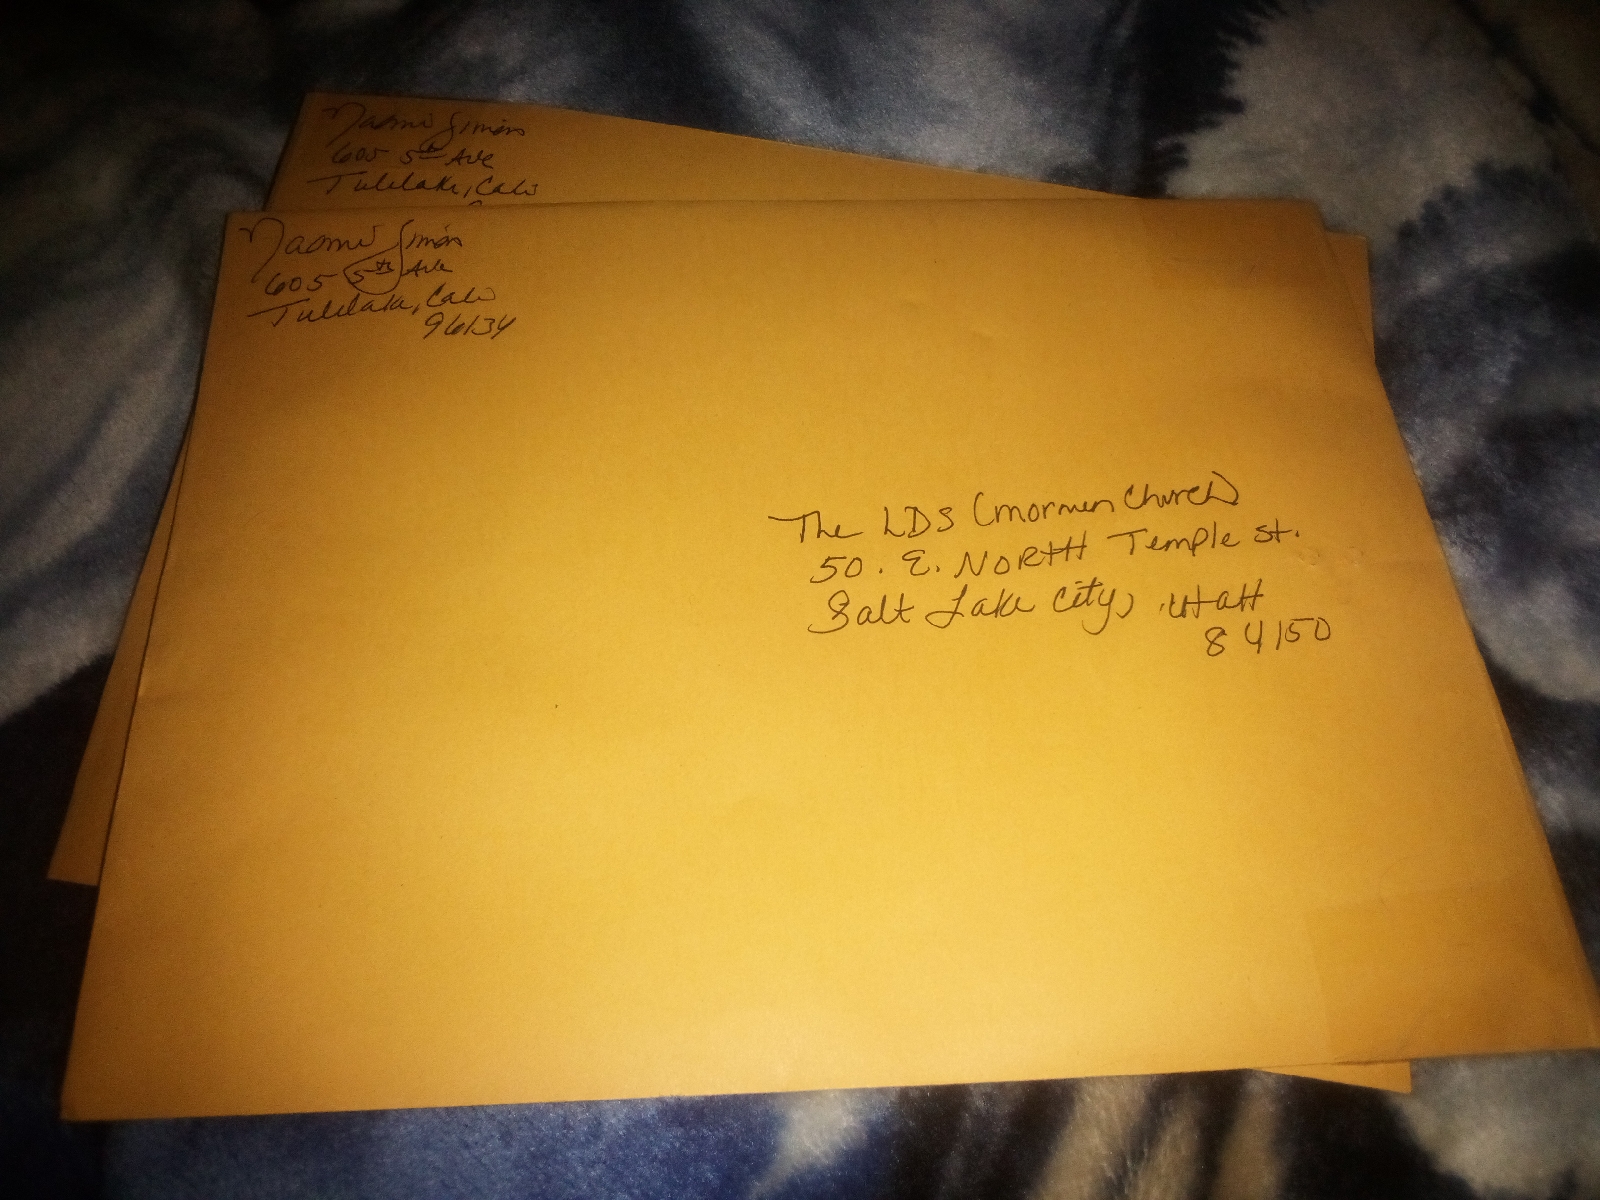 Naomi Simons
605 5th Ave
Tulelake, Cali
Naomi Simons
605 5th Ave
Tulelake, Cali
96134
The LDS (Mormen Church)
50. E. NORTH Temple St.
Salt Lake City, UtaH
84150